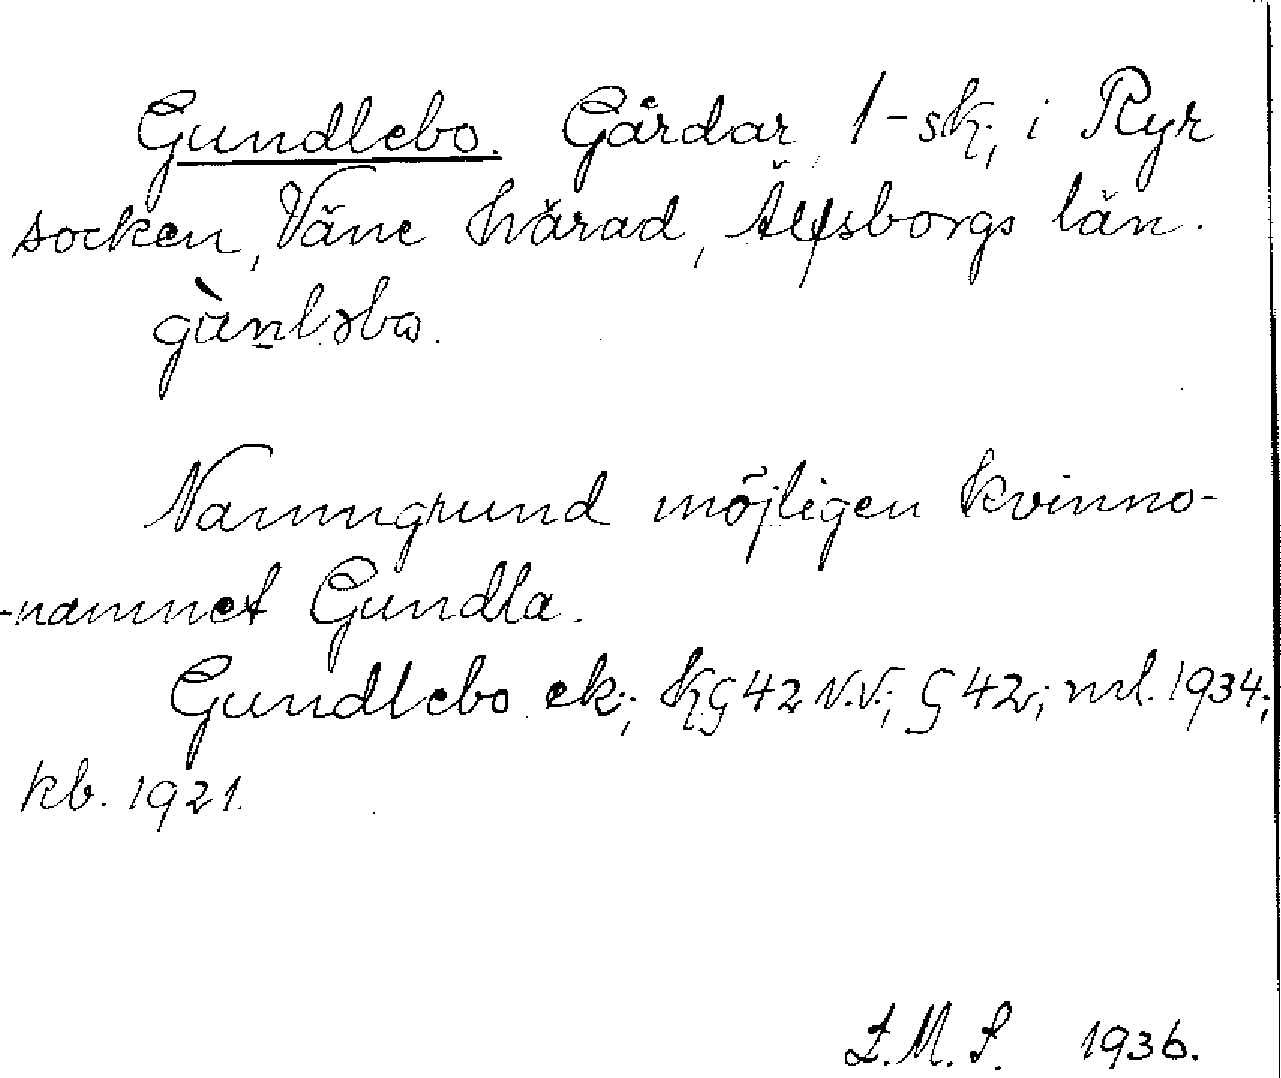 Gundlebo. Gårdar, 1-sk; i Ryr
socken, Väne härad, Älfsborgs län.
gùn̲ləbo.
Namngrund möjligen kvinno-
-namnet Gundla.
Gundlebo ek; KG 42 N.V; G 42; ml. 1934;
kb. 1921.
1936.